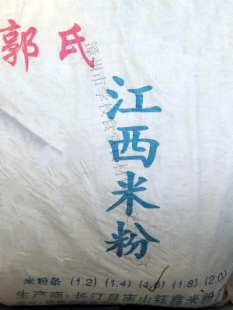 郭氏
江西米粉
米粉条 (1.2) (1.4) (1.6) (1.8) (2.0)
生产商:长江县南山钰鑫米粉厂